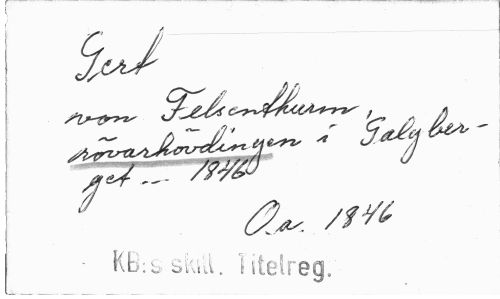 Gert
von Felsenthurm,
rövarhövdingen i Galgber-
get --- 1846
O.a. 1846
KB:s skill. Titelreg.